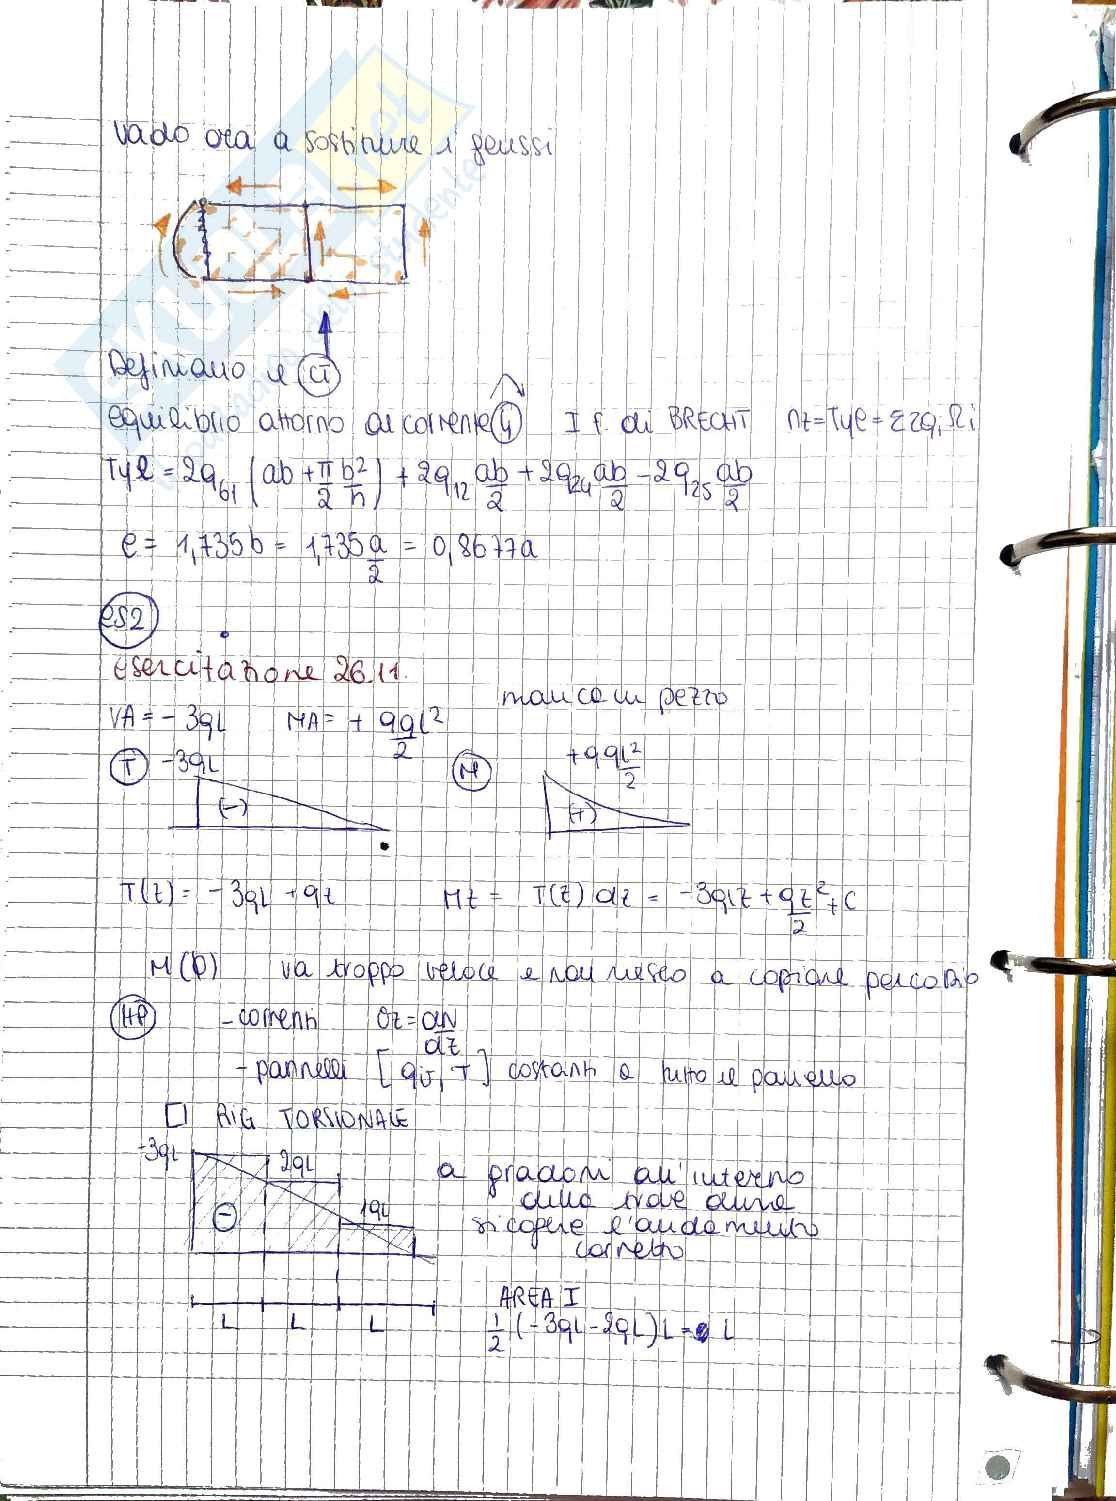 vado ora a sostituire i flussi
Definiamo il CT
equilibrio attorno al corrente 4 I f. di BREDT Mt=Tyℓ=Σ2qiΩi
Tyℓ = 2q61 (ab + π/2 b²/n) + 2q12 ab/2 + 2q24 ab/2 - 2q25 ab/2
e = 1,735b = 1,735 a/2 = 0,8677a
es2
esercitazione 26.11.
manca un pezzo
VA = - 3qL MA = + 9qL²/2
T -3qL M +9qL²/2
(-) (+)
T(z) = -3qL + qz Mz = T(z) dz = -3qLz + qz²/2 + C
M(0) va troppo veloce e non riesco a copiare
HP - correnti σz = dN/dz
- pannelli [qij, T] costanti a tutto il pannello
□ RIG TORSIONALE
-3qL 2qL 1qL
a gradoni all'interno
della trave
si copre l'andamento
corretto
L L L
AREA I
1/2 (-3qL - 2qL) L = L